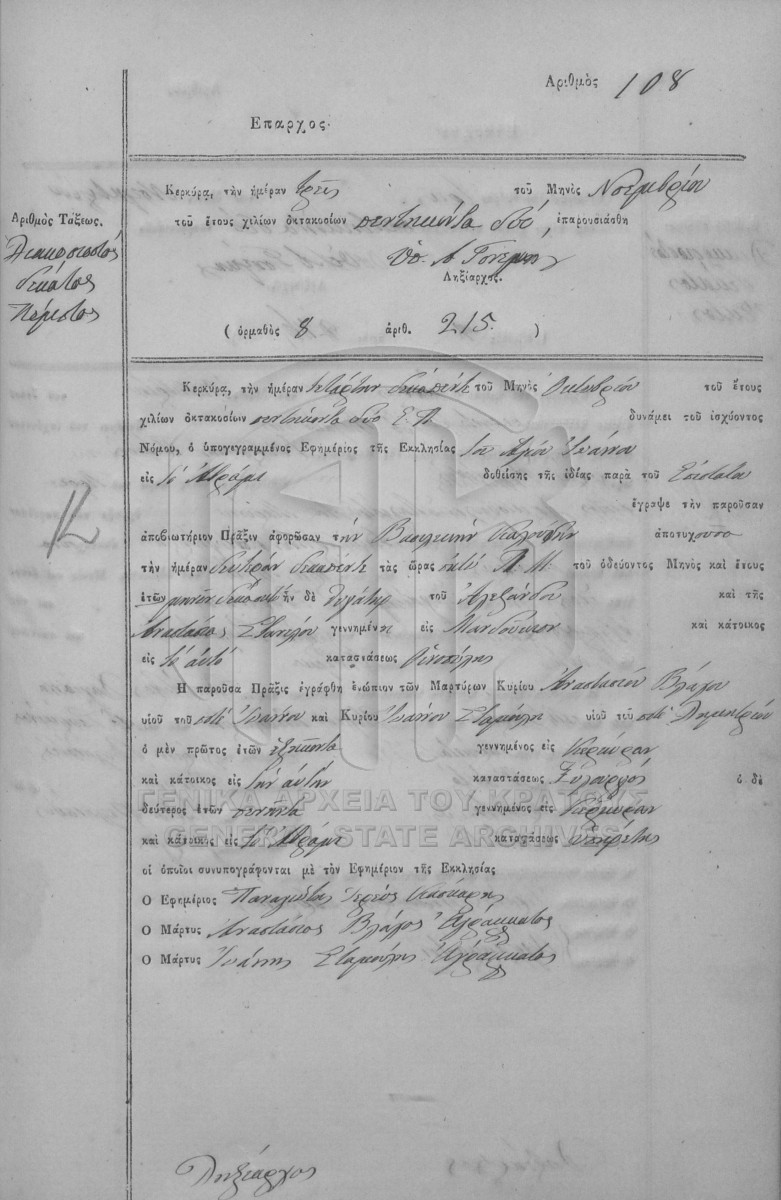 Αριθμὸς 108
Επαρχος.
Κερκύρᾳ, τὴν ἡμέραν τρεῖς τοῦ Μηνὸς Νοεμβρίου
τοῦ ἔτους χιλίων ὀκτακοσίων πεντήκοντα δύο, ἐπαρουσιάσθη
Ληξίαρχος.
(ὁρμαθὸς 8 ἀριθ. 215.)
Αριθμὸς Τάξεως.
Διακοσιοστός
δέκατος
πέμπτος
Κερκύρᾳ, τὴν ἡμέραν τετάρτην δεκαπέντε τοῦ Μηνὸς Ὀκτωβρίου τοῦ ἔτους
χιλίων ὀκτακοσίων πεντήκοντα δύο Ε.Π. δυνάμει τοῦ ἰσχύοντος
Νόμου, ὁ ὑπογεγραμμένος Εφημέριος τῆς Εκκλησίας τοῦ Ἁγίου Ἰωάννου
εἰς τὸ δοθείσης τῆς ἰδίας παρὰ τοῦ
ἔγραψε τὴν παροῦσαν
ἀποβιωτήριον Πρᾶξιν ἀφορῶσαν τὴν Βασιλικὴν ἀποτυχοῦσα
τὴν ἡμέραν δευτέραν δεκαπέντε τὰς ὥρας ὀκτὼ Π. Μ. τοῦ ὁδεύοντος Μηνὸς καὶ ἔτους
ἐτῶν μηνῶν δεκαοκτὼ ἦν δὲ θυγάτηρ τοῦ Ἀλεξάνδρου καὶ τῆς
Ἀναστασίας γεννημένη εἰς Μανδούκιον καὶ κάτοικος
εἰς τὸ αὐτό καταστάσεως
Η παροῦσα Πρᾶξις ἐγράφθη ἐνώπιον τῶν Μαρτύρων Κυρίου Ἀναστασίου Βλάχου
υἱοῦ τοῦ ποτὲ Ἰωάννου καὶ Κυρίου Ἰωάννου Σταμούλη υἱοῦ τοῦ ποτὲ Δημητρίου
ὁ μὲν πρῶτος ἐτῶν ἑξήκοντα γεννημένος εἰς Κέρκυραν
καὶ κάτοικος εἰς τὴν αὐτήν καταστάσεως Ξυλουργός ὁ δὲ
δεύτερος ἐτῶν πενήντα γεννημένος εἰς Κέρκυραν
καὶ κάτοικος εἰς τὸ καταστάσεως ὑπηρέτης
οἱ ὁποῖοι συνυπογράφονται μὲ τὸν Εφημέριον τῆς Εκκλησίας
Ο Εφημέριος Παναγιώτης Ἱερεὺς
Ο Μάρτυς Ἀναστάσιος Βλάχος Ἀγράμματος
Ο Μάρτυς Ἰωάννης Σταμούλης Ἀγράμματος
Ληξίαρχος
ΓΕΝΙΚΑ ΑΡΧΕΙΑ ΤΟΥ ΚΡΑΤΟΥΣ
GENERAL STATE ARCHIVES